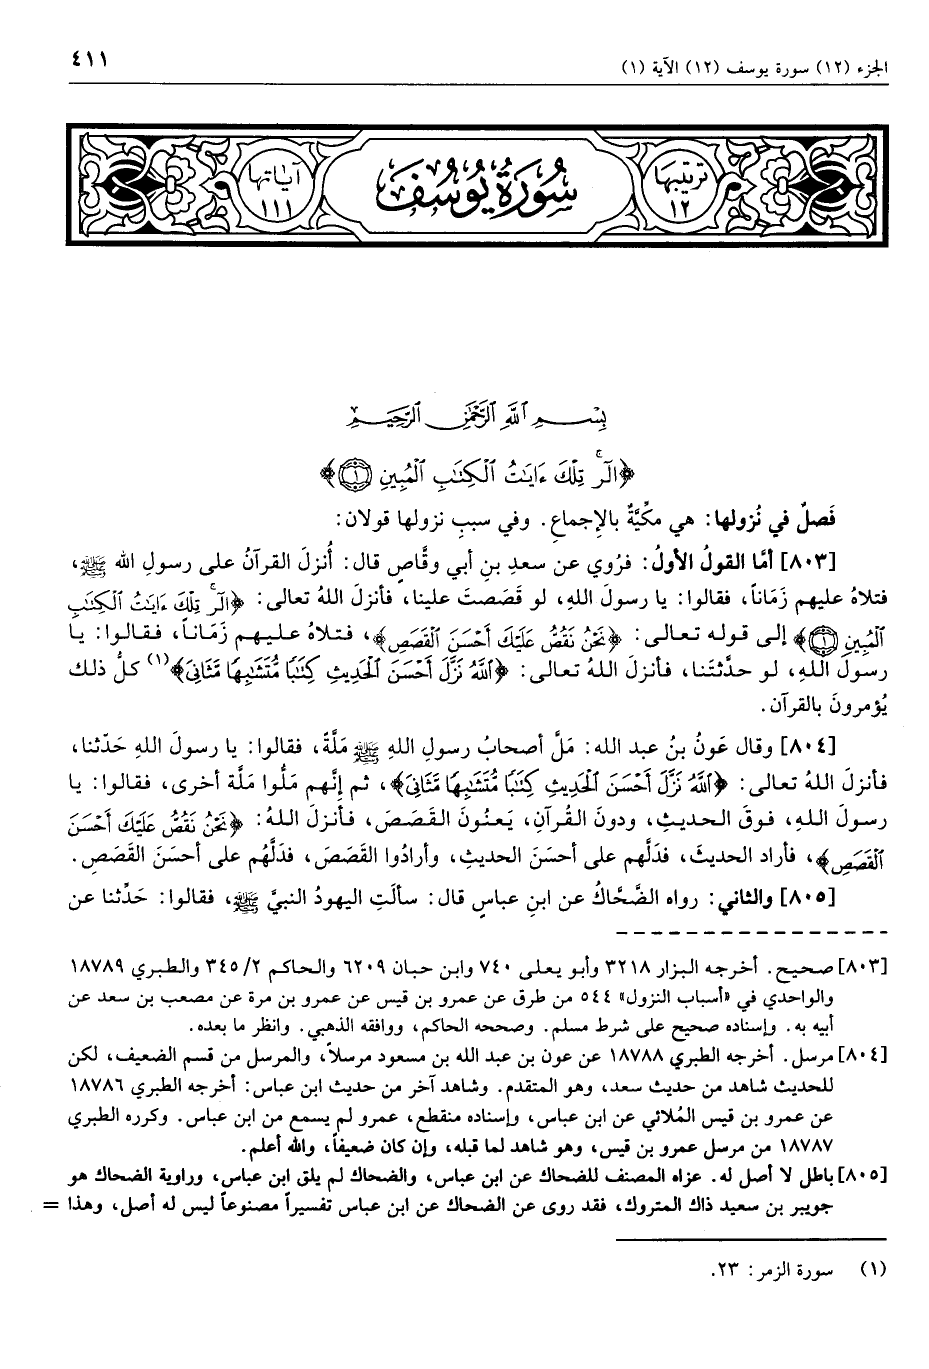 الجزء (١٢) سورة يوسف (١٢) الآية (١)
٤١١
ترتيبها ١٢
سُورَةُ يُوسُفَ
آياتها ١١١
بِسْمِ ٱللَّهِ ٱلرَّحْمَٰنِ ٱلرَّحِيمِ
﴿الٓرۚ تِلْكَ ءَايَٰتُ ٱلْكِتَٰبِ ٱلْمُبِينِ ١﴾
فَصلٌ في نُزولها: هي مكِّيَّةٌ بالإِجماعِ. وفي سببِ نزولها قولان:
[٨٠٣] أمَّا القولُ الأولُ: فرُوي عن سعدِ بنِ أبي وقَّاصٍ قال: أُنزلَ القرآنُ على رسولِ الله ﷺ،
فتلاهُ عليهم زَمَاناً، فقالوا: يا رسولَ اللهِ، لو قَصَصتَ علينا، فأنزلَ اللهُ تعالى: ﴿الٓرۚ تِلْكَ ءَايَٰتُ ٱلْكِتَٰبِ
ٱلْمُبِينِ ١﴾ إلى قوله تعالى: ﴿نَحْنُ نَقُصُّ عَلَيْكَ أَحْسَنَ ٱلْقَصَصِ﴾، فتلاهُ عليهم زَمَاناً، فقالوا: يا
رسولَ اللهِ، لو حدَّثتَنا، فأنزلَ اللهُ تعالى: ﴿ٱللَّهُ نَزَّلَ أَحْسَنَ ٱلْحَدِيثِ كِتَٰبًا مُّتَشَٰبِهًا مَّثَانِىَ﴾(١) كلُّ ذلك
يُؤمرونَ بالقرآن.
[٨٠٤] وقال عَونُ بنُ عبد الله: مَلَّ أصحابُ رسولِ اللهِ ﷺ مَلَّةً، فقالوا: يا رسولَ اللهِ حَدّثنا،
فأنزلَ اللهُ تعالى: ﴿ٱللَّهُ نَزَّلَ أَحْسَنَ ٱلْحَدِيثِ كِتَٰبًا مُّتَشَٰبِهًا مَّثَانِىَ﴾، ثم إنَّهم مَلُّوا مَلَّة أخرى، فقالوا: يا
رسولَ اللهِ، فوقَ الحديثِ، ودونَ القُرآنِ، يَعنُونَ القَصَصَ، فأنزلَ اللهُ: ﴿نَحْنُ نَقُصُّ عَلَيْكَ أَحْسَنَ
ٱلْقَصَصِ﴾، فأراد الحديثَ، فدَلَّهم على أحسَنَ الحديثِ، وأرادُوا القَصَصَ، فدَلَّهُم على أحسَنَ القَصَصِ.
[٨٠٥] والثاني: رواه الضَّحَّاكُ عن ابنِ عباسٍ قال: سألَتِ اليهودُ النبيَّ ﷺ، فقالوا: حَدِّثنا عن
[٨٠٣] صحيح. أخرجه البزار ٣٢١٨ وأبو يعلى ٧٤٠ وابن حبان ٦٢٠٩ والحاكم ٣٤٥/٢ والطبري ١٨٧٨٩
والواحدي في «أسباب النزول» ٥٤٤ من طرق عن عمرو بن قيس عن عمرو بن مرة عن مصعب بن سعد عن
أبيه به. وإسناده صحيح على شرط مسلم. وصححه الحاكم، ووافقه الذهبي. وانظر ما بعده.
[٨٠٤] مرسل. أخرجه الطبري ١٨٧٨٨ عن عون بن عبد الله بن مسعود مرسلاً، والمرسل من قسم الضعيف، لكن
للحديث شاهد من حديث سعد، وهو المتقدم. وشاهد آخر من حديث ابن عباس: أخرجه الطبري ١٨٧٨٦
عن عمرو بن قيس المُلائي عن ابن عباس، وإسناده منقطع، عمرو لم يسمع من ابن عباس. وكرره الطبري
١٨٧٨٧ من مرسل عمرو بن قيس، وهو شاهد لما قبله، وإن كان ضعيفاً، والله أعلم.
[٨٠٥] باطل لا أصل له. عزاه المصنف للضحاك عن ابن عباس، والضحاك لم يلق ابن عباس، وراوية الضحاك هو
جويبر بن سعيد ذاك المتروك، فقد روى عن الضحاك عن ابن عباس تفسيراً مصنوعاً ليس له أصل، وهذا =
(١) سورة الزمر: ٢٣.